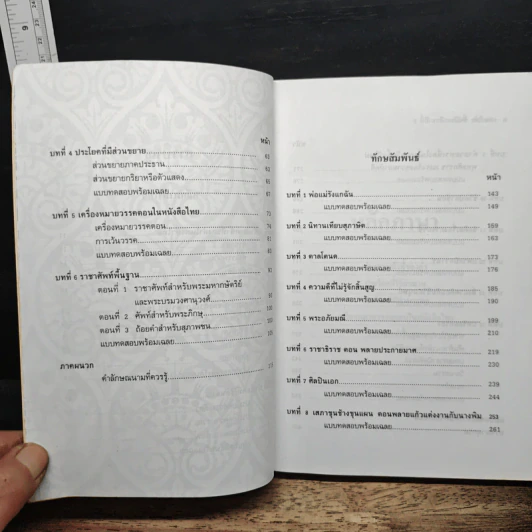 หน้า
บทที่ 4 ประโยคที่มีส่วนขยาย
ส่วนขยายภาคประธาน
ส่วนขยายกริยาหรือตัวแสดง
แบบทดสอบพร้อมเฉลย
บทที่ 5 เครื่องหมายวรรคตอนในหนังสือไทย
เครื่องหมายวรรคตอน
การเว้นวรรค
แบบทดสอบพร้อมเฉลย
บทที่ 6 ราชาศัพท์พื้นฐาน
ตอนที่ 1 ราชาศัพท์สำหรับพระมหากษัตริย์
และพระบรมวงศานุวงศ์
ตอนที่ 2 ศัพท์สำหรับพระภิกษุ
ตอนที่ 3 ถ้อยคำสำหรับสุภาพชน
แบบทดสอบพร้อมเฉลย
ภาคผนวก
คำลักษณนามที่ควรรู้
ทักษสัมพันธ์
หน้า
บทที่ 1 พ่อแม่รังแกฉัน 143
แบบทดสอบพร้อมเฉลย 149
บทที่ 2 นิทานเทียบสุภาษิต 159
แบบทดสอบพร้อมเฉลย 163
บทที่ 3 ตาลโตนด 173
แบบทดสอบพร้อมเฉลย 176
บทที่ 4 ความดีที่ไม่รู้จักสิ้นสูญ 185
แบบทดสอบพร้อมเฉลย 190
บทที่ 5 พระอภัยมณี 199
แบบทดสอบพร้อมเฉลย 210
บทที่ 6 ราชาธิราช ตอน พลายประกายมาศ 219
แบบทดสอบพร้อมเฉลย 230
บทที่ 7 ศิลปินเอก 239
แบบทดสอบพร้อมเฉลย 244
บทที่ 8 เสภาขุนช้างขุนแผน ตอนพลายแก้วแต่งงานกับนางพิม 253
แบบทดสอบพร้อมเฉลย 261